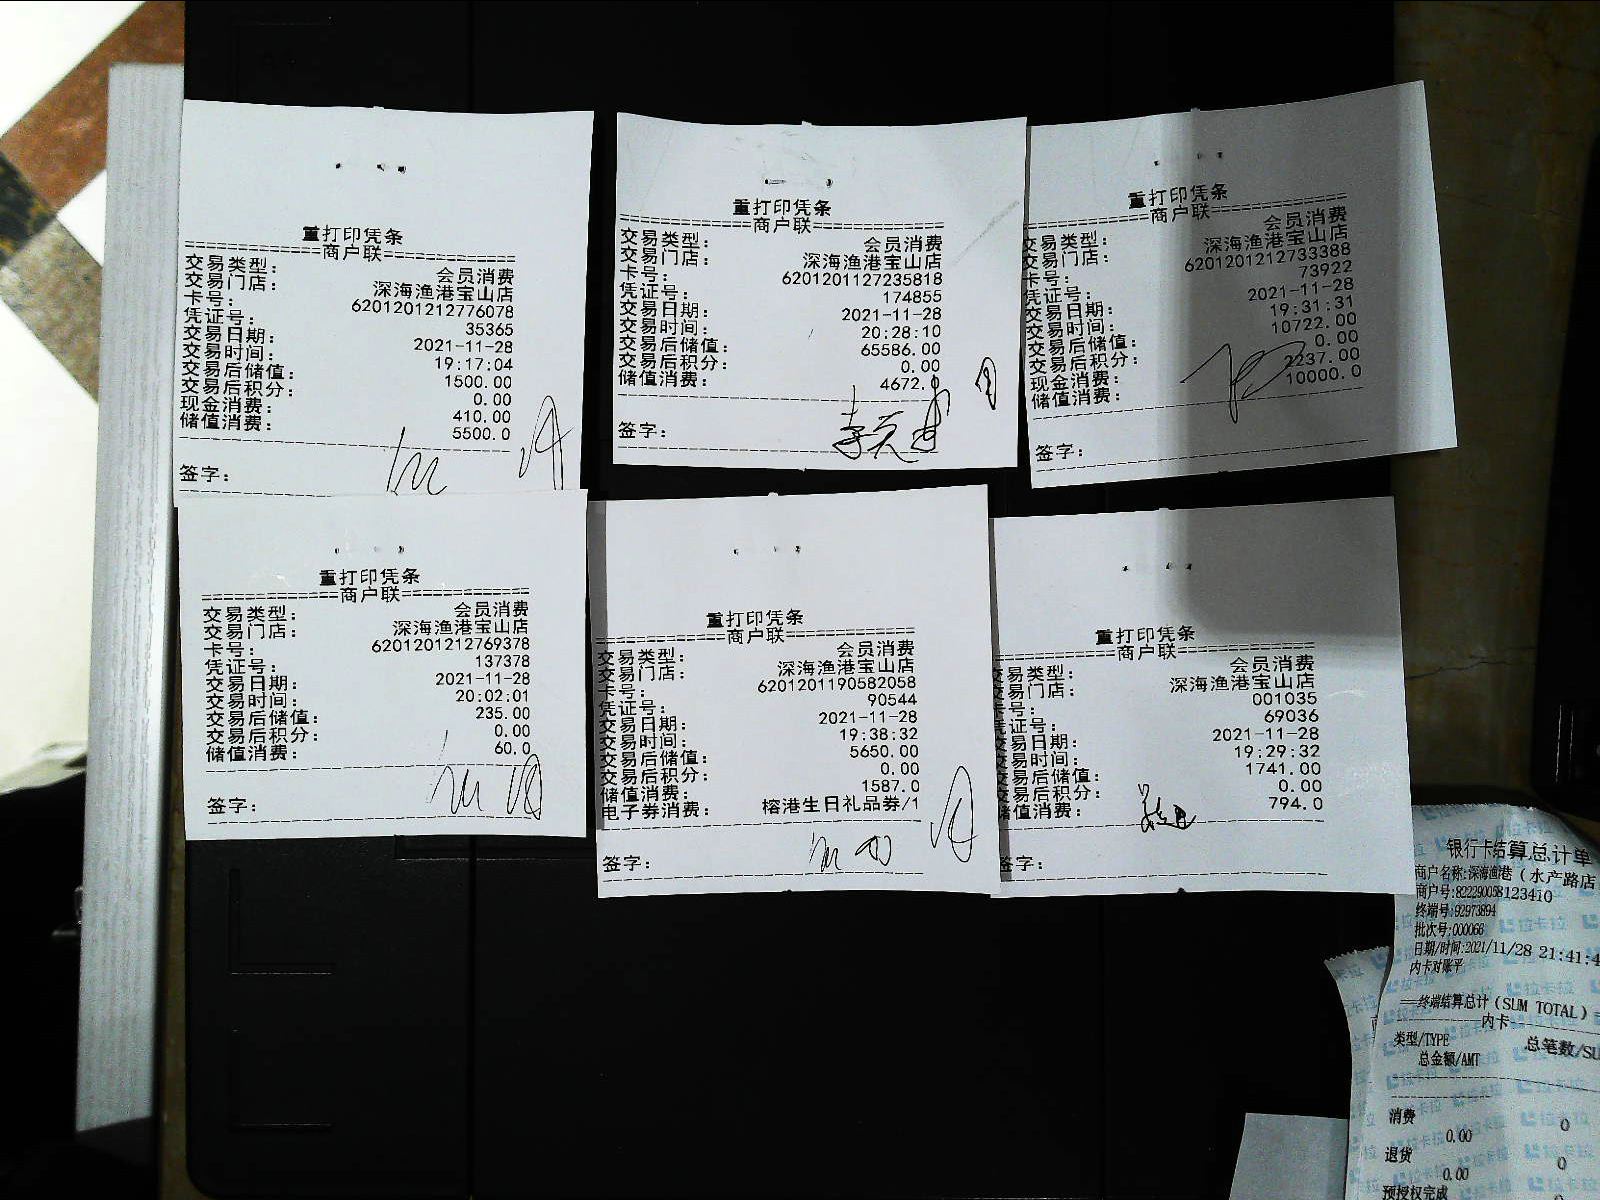 重打印凭条
商户联
交易类型： 会员消费
交易门店： 深海渔港宝山店
卡号： 6201201212776078
凭证号： 35365
交易日期： 2021-11-28
交易时间： 19:17:04
交易后储值： 1500.00
交易后积分： 0.00
现金消费： 410.00
储值消费： 5500.0
签字：
重打印凭条
商户联
交易类型： 会员消费
交易门店： 深海渔港宝山店
卡号： 6201201127235818
凭证号： 174855
交易日期： 2021-11-28
交易时间： 20:28:10
交易后储值： 65586.00
交易后积分： 0.00
储值消费： 4672.0
签字：
重打印凭条
商户联
交易类型： 会员消费
交易门店： 深海渔港宝山店
卡号： 6201201212733388
凭证号： 73922
交易日期： 2021-11-28
交易时间： 19:31:31
交易后储值： 10722.00
交易后积分： 0.00
现金消费： 2237.00
储值消费： 10000.0
签字：
重打印凭条
商户联
交易类型： 会员消费
交易门店： 深海渔港宝山店
卡号： 6201201212769378
凭证号： 137378
交易日期： 2021-11-28
交易时间： 20:02:01
交易后储值： 235.00
交易后积分： 0.00
储值消费： 60.0
签字：
重打印凭条
商户联
交易类型： 会员消费
交易门店： 深海渔港宝山店
卡号： 6201201190582058
凭证号： 90544
交易日期： 2021-11-28
交易时间： 19:38:32
交易后储值： 5650.00
交易后积分： 0.00
储值消费： 1587.0
电子券消费： 榕港生日礼品券/1
签字：
重打印凭条
商户联
交易类型： 会员消费
交易门店： 深海渔港宝山店
卡号： 001035
凭证号： 69036
交易日期： 2021-11-28
交易时间： 19:29:32
交易后储值： 1741.00
交易后积分： 0.00
储值消费： 794.0
签字：
银行卡结算总计单
商户名称:深海渔港（水产路店
商户号:822290058123410
终端号:92973894
批次号:000066
日期/时间:2021/11/28 21:41:4
内卡对账平
终端结算总计（SUM TOTAL）
内卡
类型/TYPE 总笔数/SU
总金额/AMT
消费 0
0.00
退货 0
0.00
预授权完成